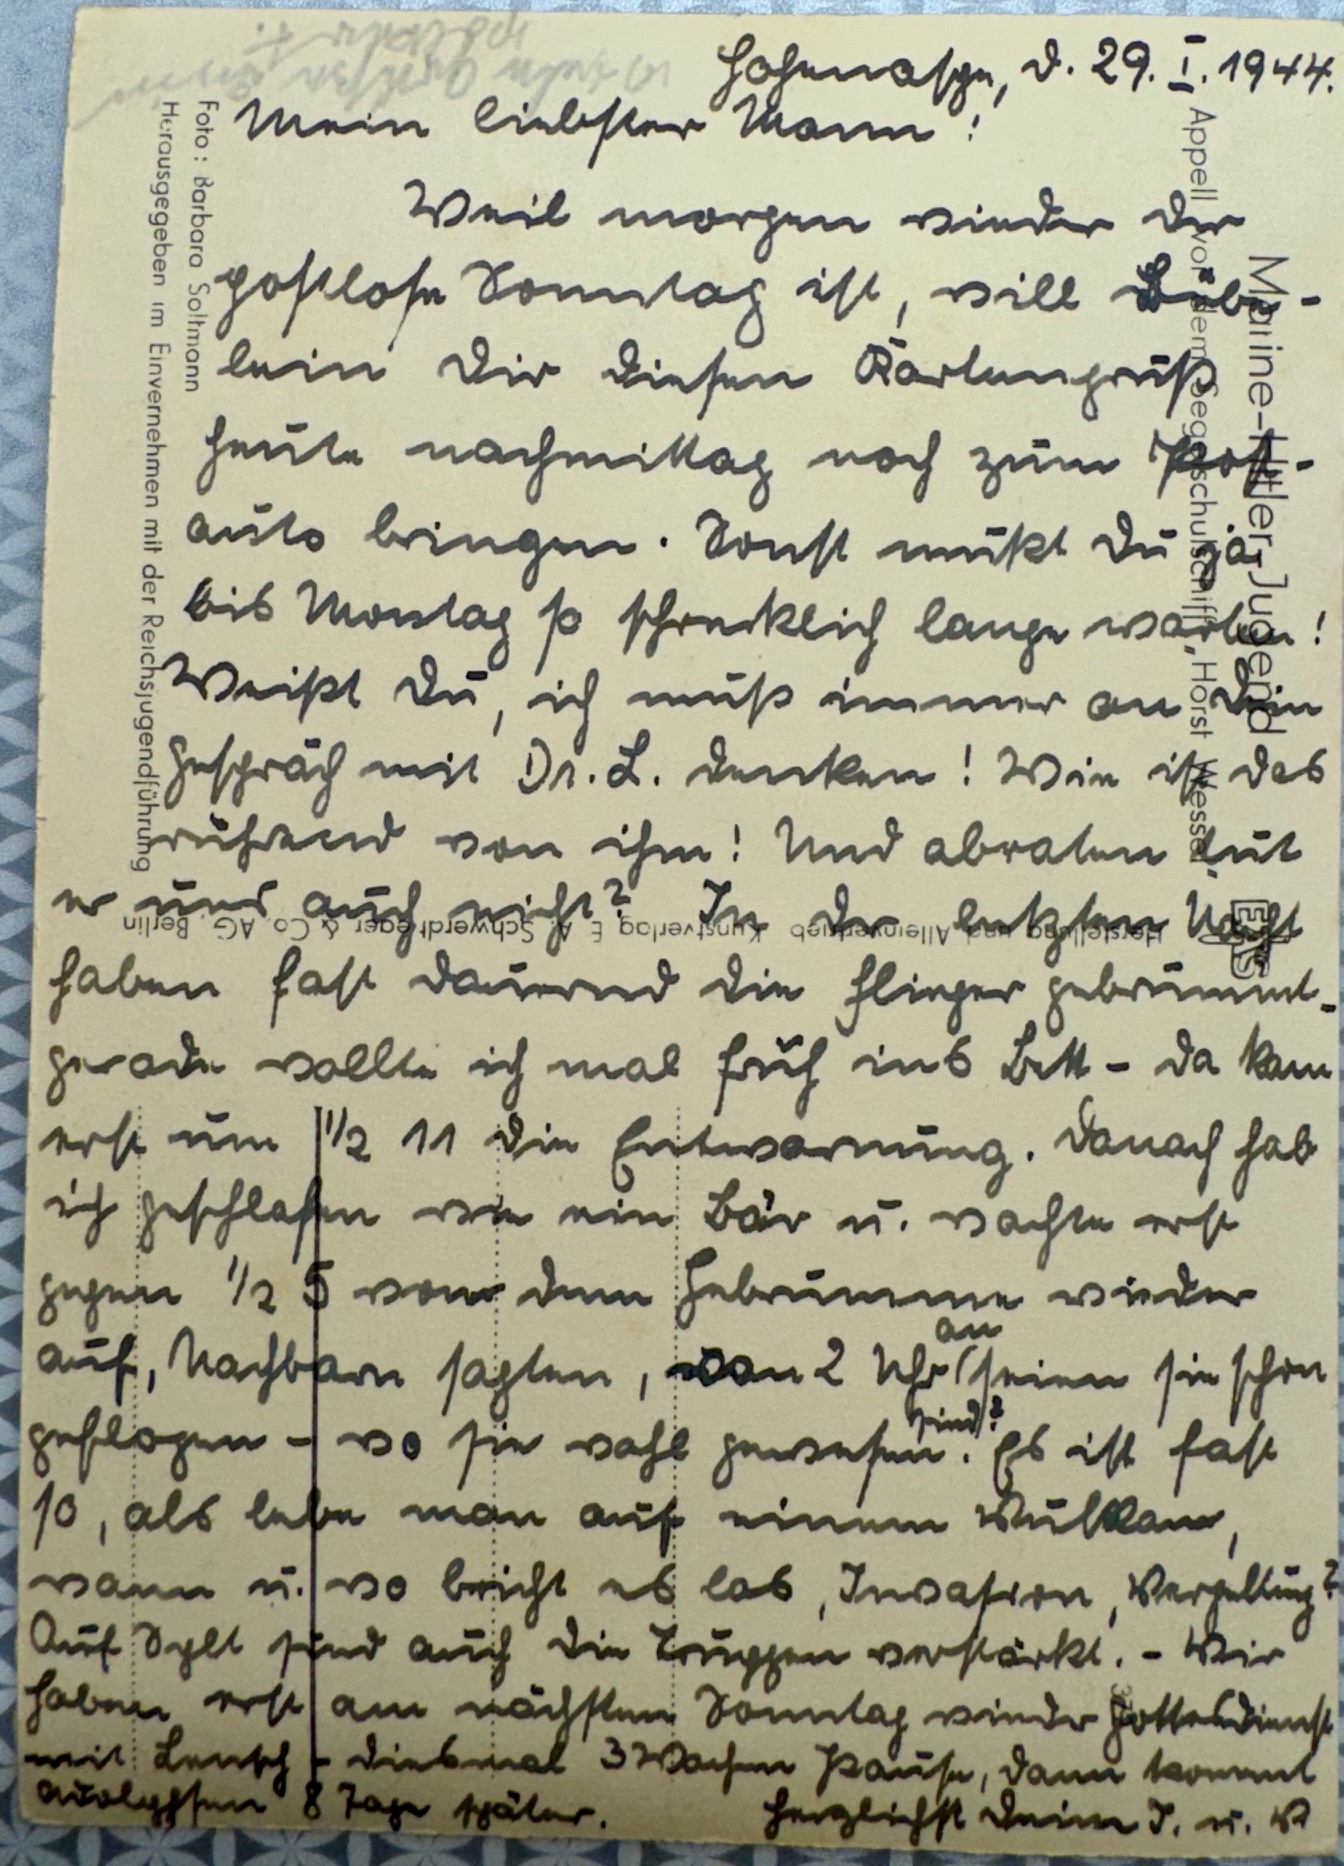 Hohenaspe, d. 29. I. 1944.
Mein liebster Mann!
Weil morgen wieder der
postlose Sonntag ist, will Bübe-
lein Dir diesen Kartengruß
heute nachmittag noch zum Post-
auto bringen. Sonst mußt Du ja
bis Montag so schrecklich lange warten!
Weißt Du, ich muß immer an Dein
Gespräch mit Dr. L. denken! Wie ist das
rührend von ihm! Und abraten tut
er uns auch nicht? In der letzten Nacht
haben fast dauernd die Flieger gebrummt.
gerade wollte ich mal früh ins Bett - da kam
erst um 1/2 11 die Entwarnung. Danach hab
ich geschlafen wie ein Bär u. wachte erst
gegen 1/2 5 von dem Gebrumme wieder
auf, Nachbarn sagten, von 2 Uhr an seien sie schon
geflogen - wo sie wohl gewesen sind? Es ist fast
so, als lebe man auf einem Vulkan,
wann u. wo bricht es los, Invasion, Vergeltung?
Auf Sylt sind auch die Truppen verstärkt. - Wir
haben erst am nächsten Sonntag wieder Gottesdienst
mit - diesmal 3 Wochen Pause, dann kommt
8 Tage später. Herzlichst Deine I. u. V
Marine-Hitler-Jugend
Appell vor dem Segelschulschiff „Horst Wessel"
Foto: Barbara Soltmann
Herausgegeben im Einvernehmen mit der Reichsjugendführung
Herstellung und Alleinvertrieb Kunstverlag E. A. Schwerdtfeger & Co. AG. Berlin
EAS